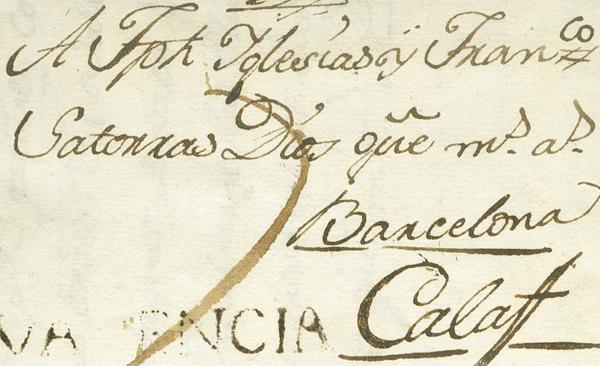 A Jph Yglesias ÿ Franco
Satorras Dios que ms. as.
Barcelona
VA ENCIA Calaff